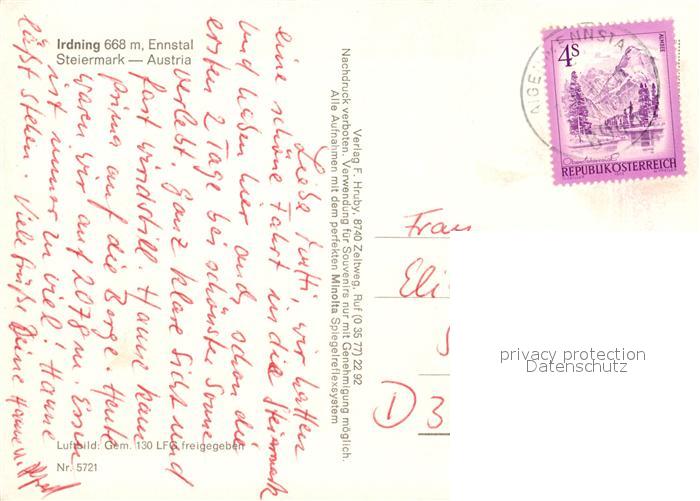 Irdning 668 m, Ennstal
Steiermark — Austria
Liebe Mutti, wir hatten
eine schöne Fahrt in die Steiermark
und haben hier auch schon die
ersten 2 Tage bei schönster Sonne
verlebt. Ganz klare Sicht und
fast windstill. Hanne kam
prima auf die Berge. Heute
waren wir auf 2078 m. Essen
ist immer zu viel! Hanne
läßt stehen. Viele Grüße Deine Hanne u.
Luftbild: Gem. 130 LFG freigegeben
Nr. 5721
Verlag F. Hruby, 8740 Zeltweg, Ruf (0 35 77) 22 92
Nachdruck verboten. Verwendung für Souvenirs nur mit Genehmigung möglich.
Alle Aufnahmen mit dem perfekten Minolta Spiegelreflexsystem
4S
ALMSEE
REPUBLIK ÖSTERREICH
AIGEN
ENNSTA
Frau
Eli
D 3
privacy protection
Datenschutz